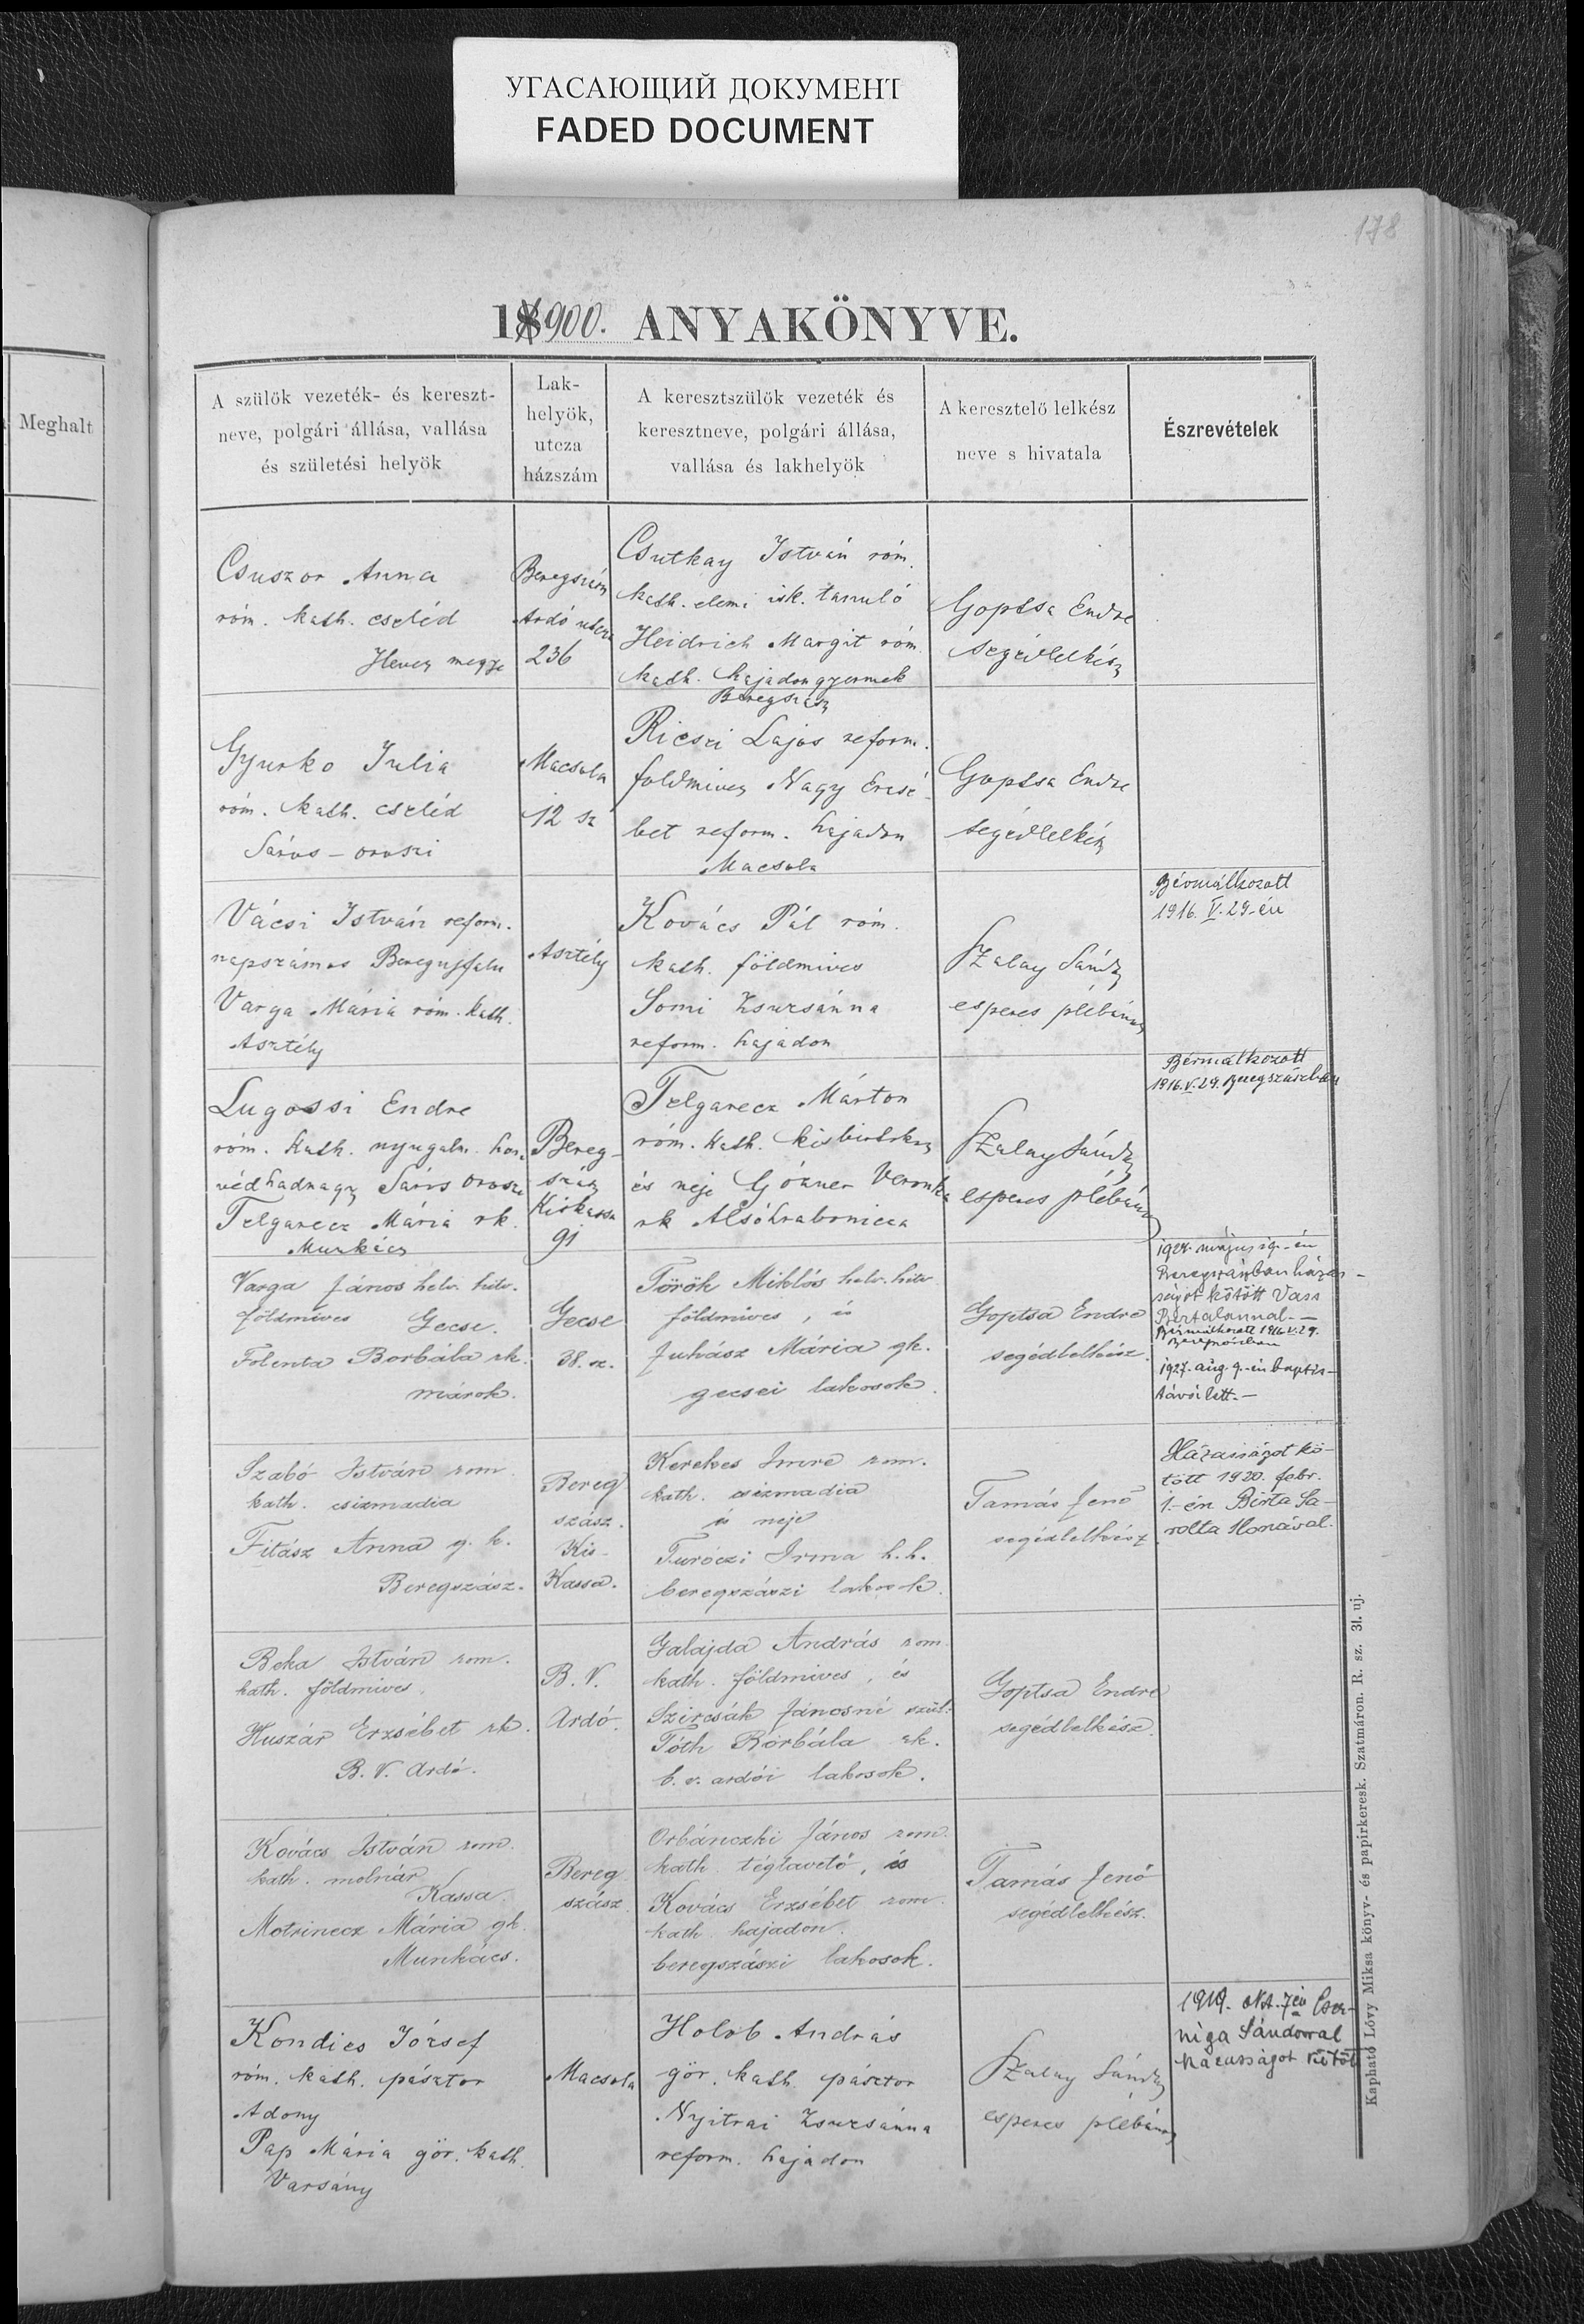 УГАСАЮЩИЙ ДОКУМЕНТ
FADED DOCUMENT
178
1900. ANYAKÖNYVE.
Meghalt
A szülök vezeték- és kereszt-
neve, polgári állása, vallása
és születési helyök
Lak-
helyök,
utcza
házszám
A keresztszülök vezeték és
keresztneve, polgári állása,
vallása és lakhelyök
A keresztelő lelkész
neve s hivatala
Észrevételek
Csuszor Anna
róm. kath. cseléd
Heves megye
Beregszász
Ardó utcza
236
Csutkay István róm.
kath. elemi isk. tanuló
Heidrich Margit róm.
kath. hajadon gyermek
Beregszász
Goptsa Endre
segédlelkész
Gyurko Julia
róm. kath. cseléd
Sáros-oroszi
Macsola
12 sz
Ricszi Lajos reform.
foldmives Nagy Erzsé-
bet reform. hajadon
Macsola
Goptsa Endre
segédlelkész
Vácsi István reform.
napszámos Beregujfalu
Varga Mária róm. kath.
Asztély
Asztély
Kovács Pál róm.
kath. földmives
Somi Zsuzsánna
reform. hajadon
Szalay Sándor
esperes plébános
Bérmálkozott
1916. V. 29-én
Lugossi Endre
róm. kath. nyugalm. hon-
védhadnagy Sáros oroszi
Telgarecz Mária rk.
Munkács
Bereg-
szász
Kiskassa
91
Telgarecz Márton
róm. kath. kisbirtokos
és neje Gózner Veronka
rk Alsóhrabonicza
Szalay Sándor
esperes plébános
Bérmálkozott
1916. V. 29. Beregszászban
Varga János helv. hitv.
földmives Gecse.
Folenta Borbála rk.
márok.
Gecse
38. sz.
Török Miklós helv. hitv
földmives, és
Juhász Mária gk.
gecsei lakosok.
Goptsa Endre
segédlelkész.
Beregszászban házas-
ságot kötött Vass
Bertalannal.—
Bérmálkozott 1916. V. 29.
Beregszászban
1927. aug. 9.-én baptis-
távói lett.—
Szabó István rom.
kath. csizmadia
Fitász Anna g. k.
Beregszász.
Bereg
szász.
Kis-
Kassa.
Kerekes Imre rom.
kath. csizmadia
és neje
Turóczi Irma h. h.
beregszászi lakosok.
Tamás Jenő
segédlelkész
Házasságot kö-
tött 1920. febr.
1.-én Birta Sa-
rolta Ilonával.
Beka István rom.
kath. földmives.
Huszár Erzsébet rk.
B. V. Ardó.
B. V.
Ardó.
Galajda András rom.
kath. földmives, és
Szircsák Jánosné szül:
Tóth Borbála rk.
b. v. ardói lakosok.
Goptsa Endre
segédlelkész.
Kovács István rom.
kath. molnár
Kassa.
Motrinecz Mária gk.
Munkács.
Bereg
szász.
Orbánczki János rom.
kath. téglavető, és
Kovács Erzsébet rom.
kath. hajadon.
beregszászi lakosok.
Tamás Jenő
segédlelkész.
Kondics József
róm. kath. pásztor
Adony
Pap Mária gör. kath.
Varsány
Macsola
Holob András
gör. kath. pásztor
Nyitrai Zsuzsánna
reform. hajadon
Szalay Sándor
esperes plébános
1919. okt. 7én Cser-
niga Sándorral
házasságot kötött
Kapható Lővy Miksa könyv- és papirkeresk. Szatmáron. R. sz. 31. uj.